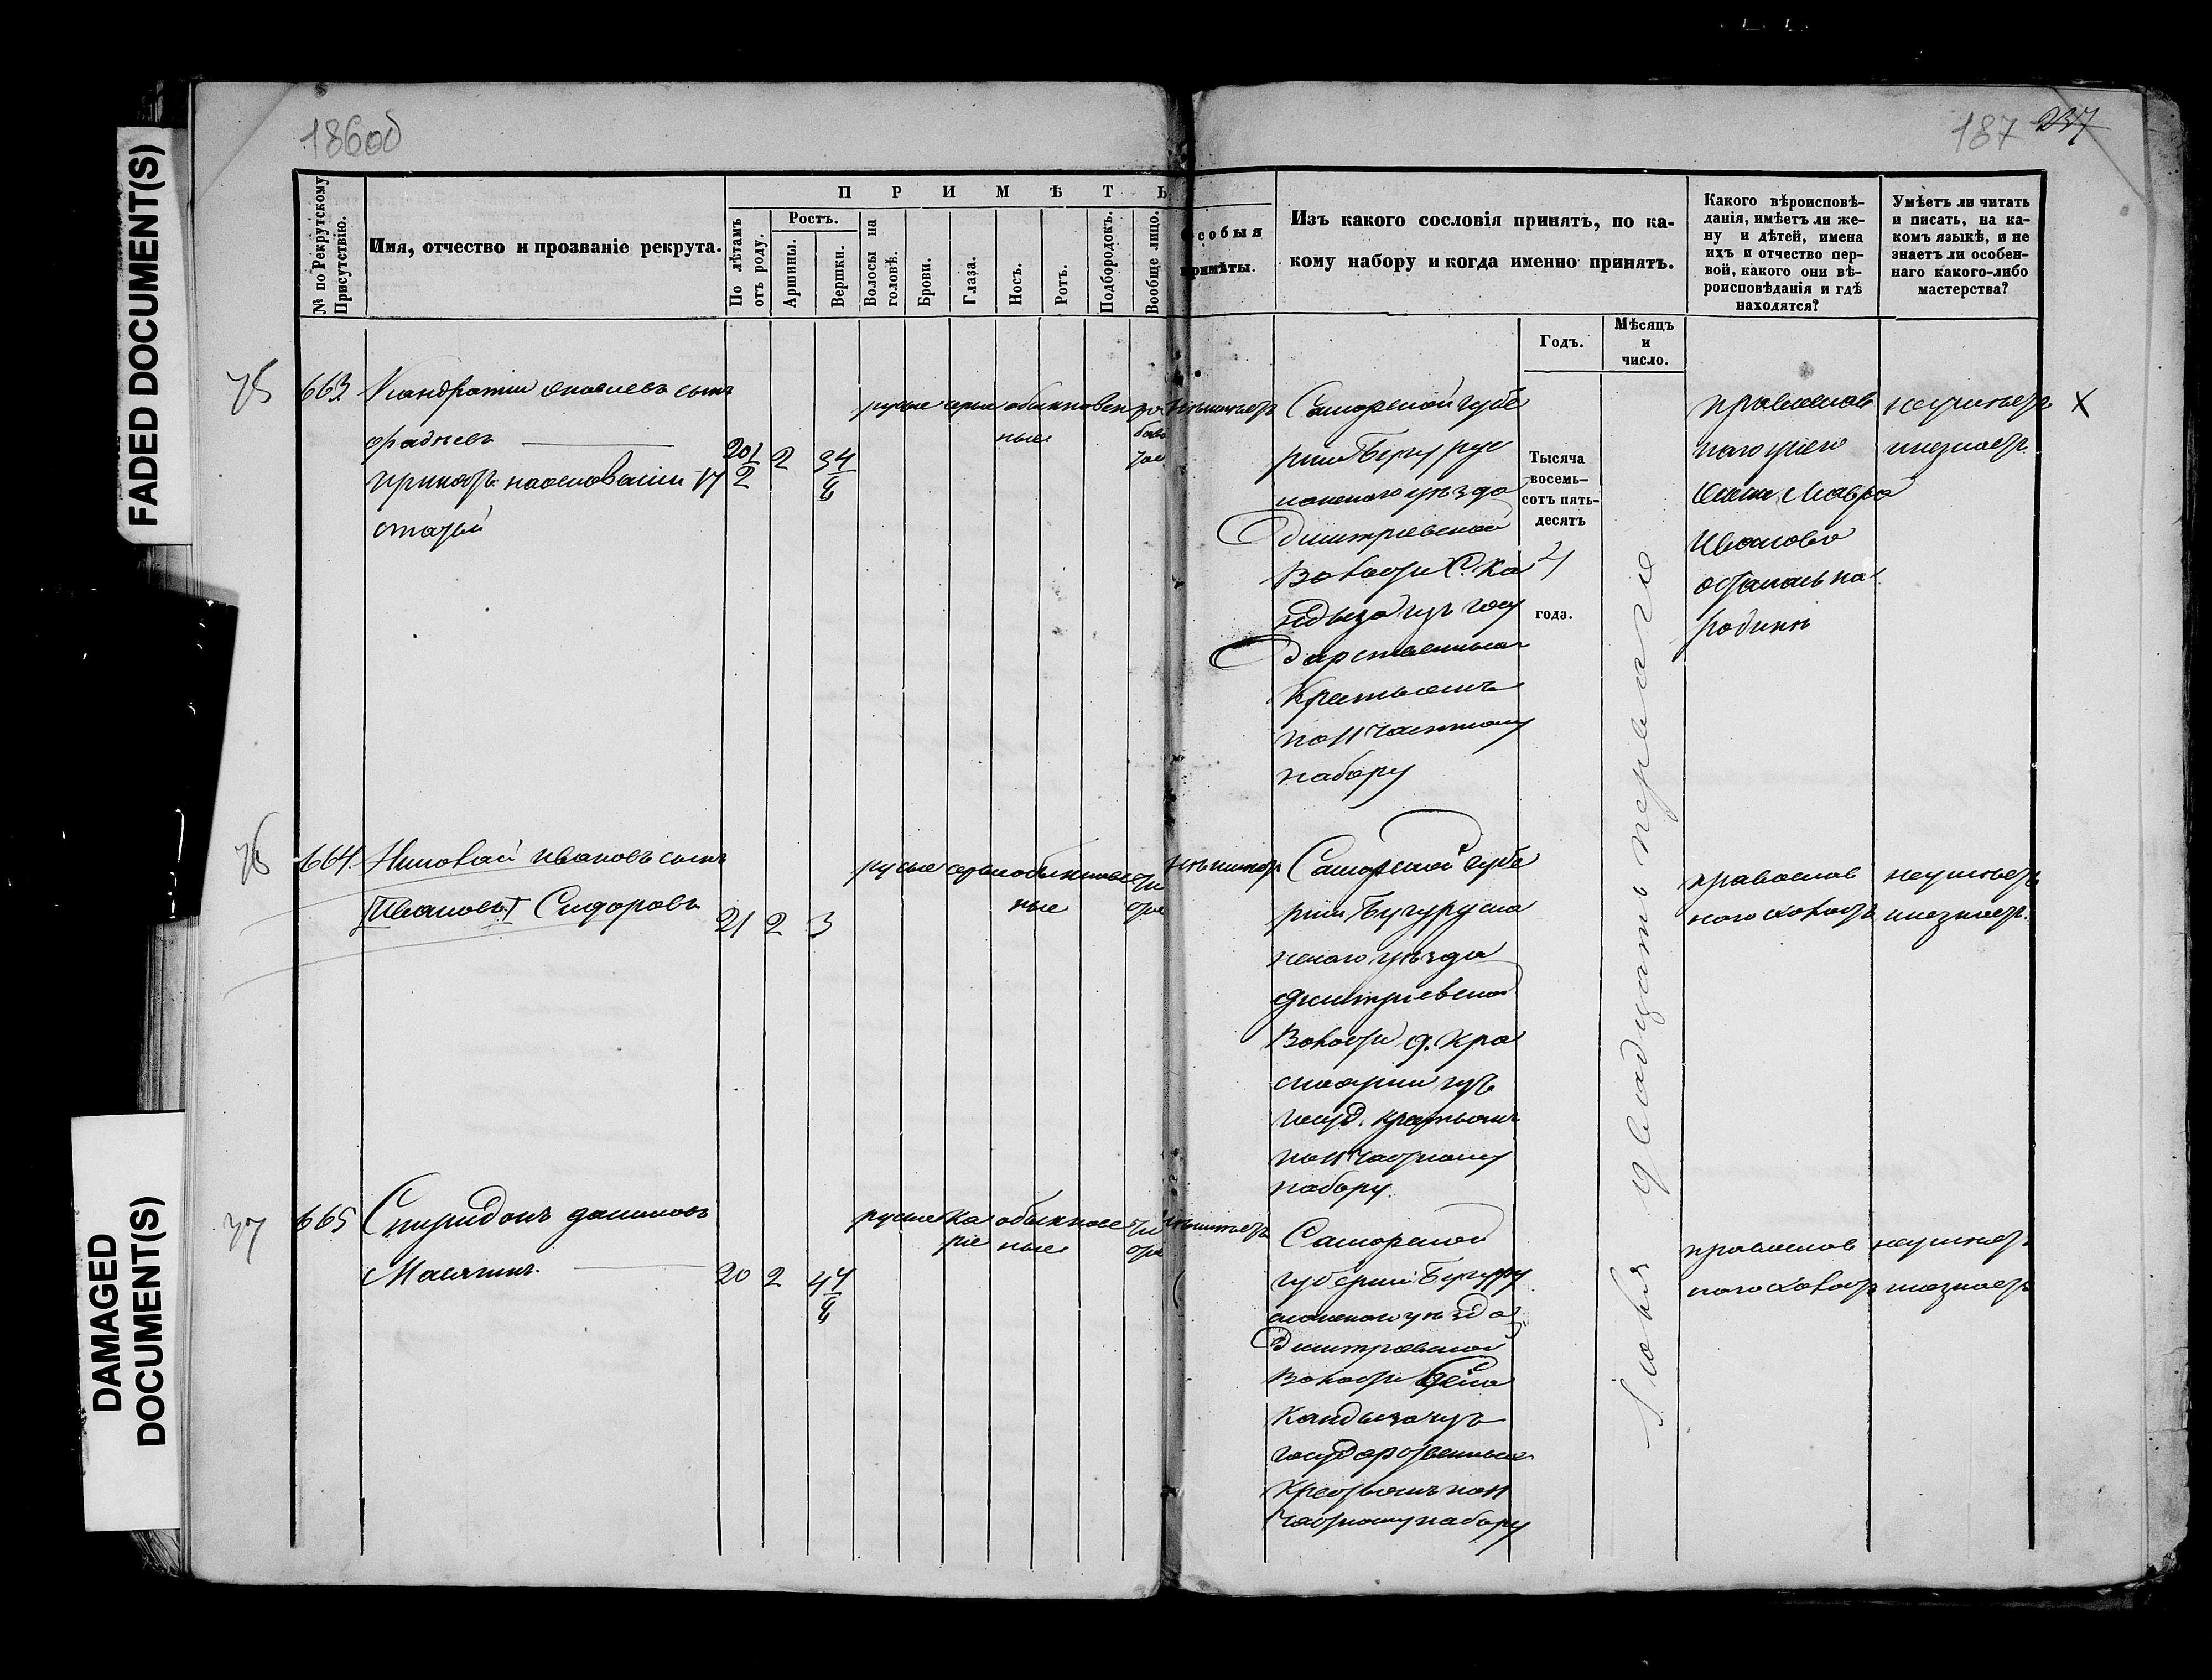 186об
187 237
FADED DOCUMENT(S)
DAMAGED
DOCUMENT(S)
№ по Рекрутскому
Присутствію.
Имя, отчество и прозваніе рекрута.
ПРИМѢТЫ
По лѣтамъ
отъ роду.
Ростъ.
Аршины.
Вершки.
Волосы на
головѣ.
Брови.
Глаза.
Носъ.
Ротъ.
Подбородокъ.
Вообще лицо.
Особыя
примѣты.
Изъ какого сословія принятъ, по ка-
кому набору и когда именно принятъ.
Годъ.
Мѣсяцъ
и
число.
Какого вѣроисповѣ-
данія, имѣетъ ли же-
ну и дѣтей, имена
ихъ и отчество пер-
вой, какого они вѣ-
роисповѣданія и гдѣ
находятся?
Умѣетъ ли читать
и писать, на ка-
комъ языкѣ, и не
знаетъ ли особен-
наго какого-либо
мастерства?
75 663 Кандратии Яковлевъ сынъ
принятъ наосновании 17
статьи
20 1/2 2 3 4/8
русые серые обыкновен
ные
неимеетъ
Самарской губе
рнии Бугурус
ланского уезда
Дмитриевской
Волости С. Ка
ндыза изъ госу
дарственныхъ
Крестьянъ
по 11 частному
набору
Тысяча
восемь-
сотъ пять-
десятъ
4
года.
Июня двадцать перваго
православ
ного
жена Мавра
Иванова
осталась на
родине
неумеетъ
инезнаетъ
X
76 664 Николай Ивановъ сынъ
[Ивановъ] Сидоровъ
21 2 3
русые серые обыкнове
ные
чи
стое
неимеетъ
Самарской губе
рнии Бугурусла
нского уезда
Дмитриевской
Волости д. Кра
сноярки изъ
госуд. крестьянъ
по 11 частному
набору.
православ
ного холостъ
неумеетъ
инезнаетъ
77 665 Спиридонъ Даниловъ
Масягинъ
20 2 4 4/8
русые ка
рие
обыкнове
ные
чи
стое
неимеетъ
Самарской
губернии Бугуру
сланского уезда
Дмитровской
Волости Села
Кандыза изъ
государственныхъ
Крестьянъ по 11
частному набору
православ
ного холостъ
неумеетъ
инезнаетъ